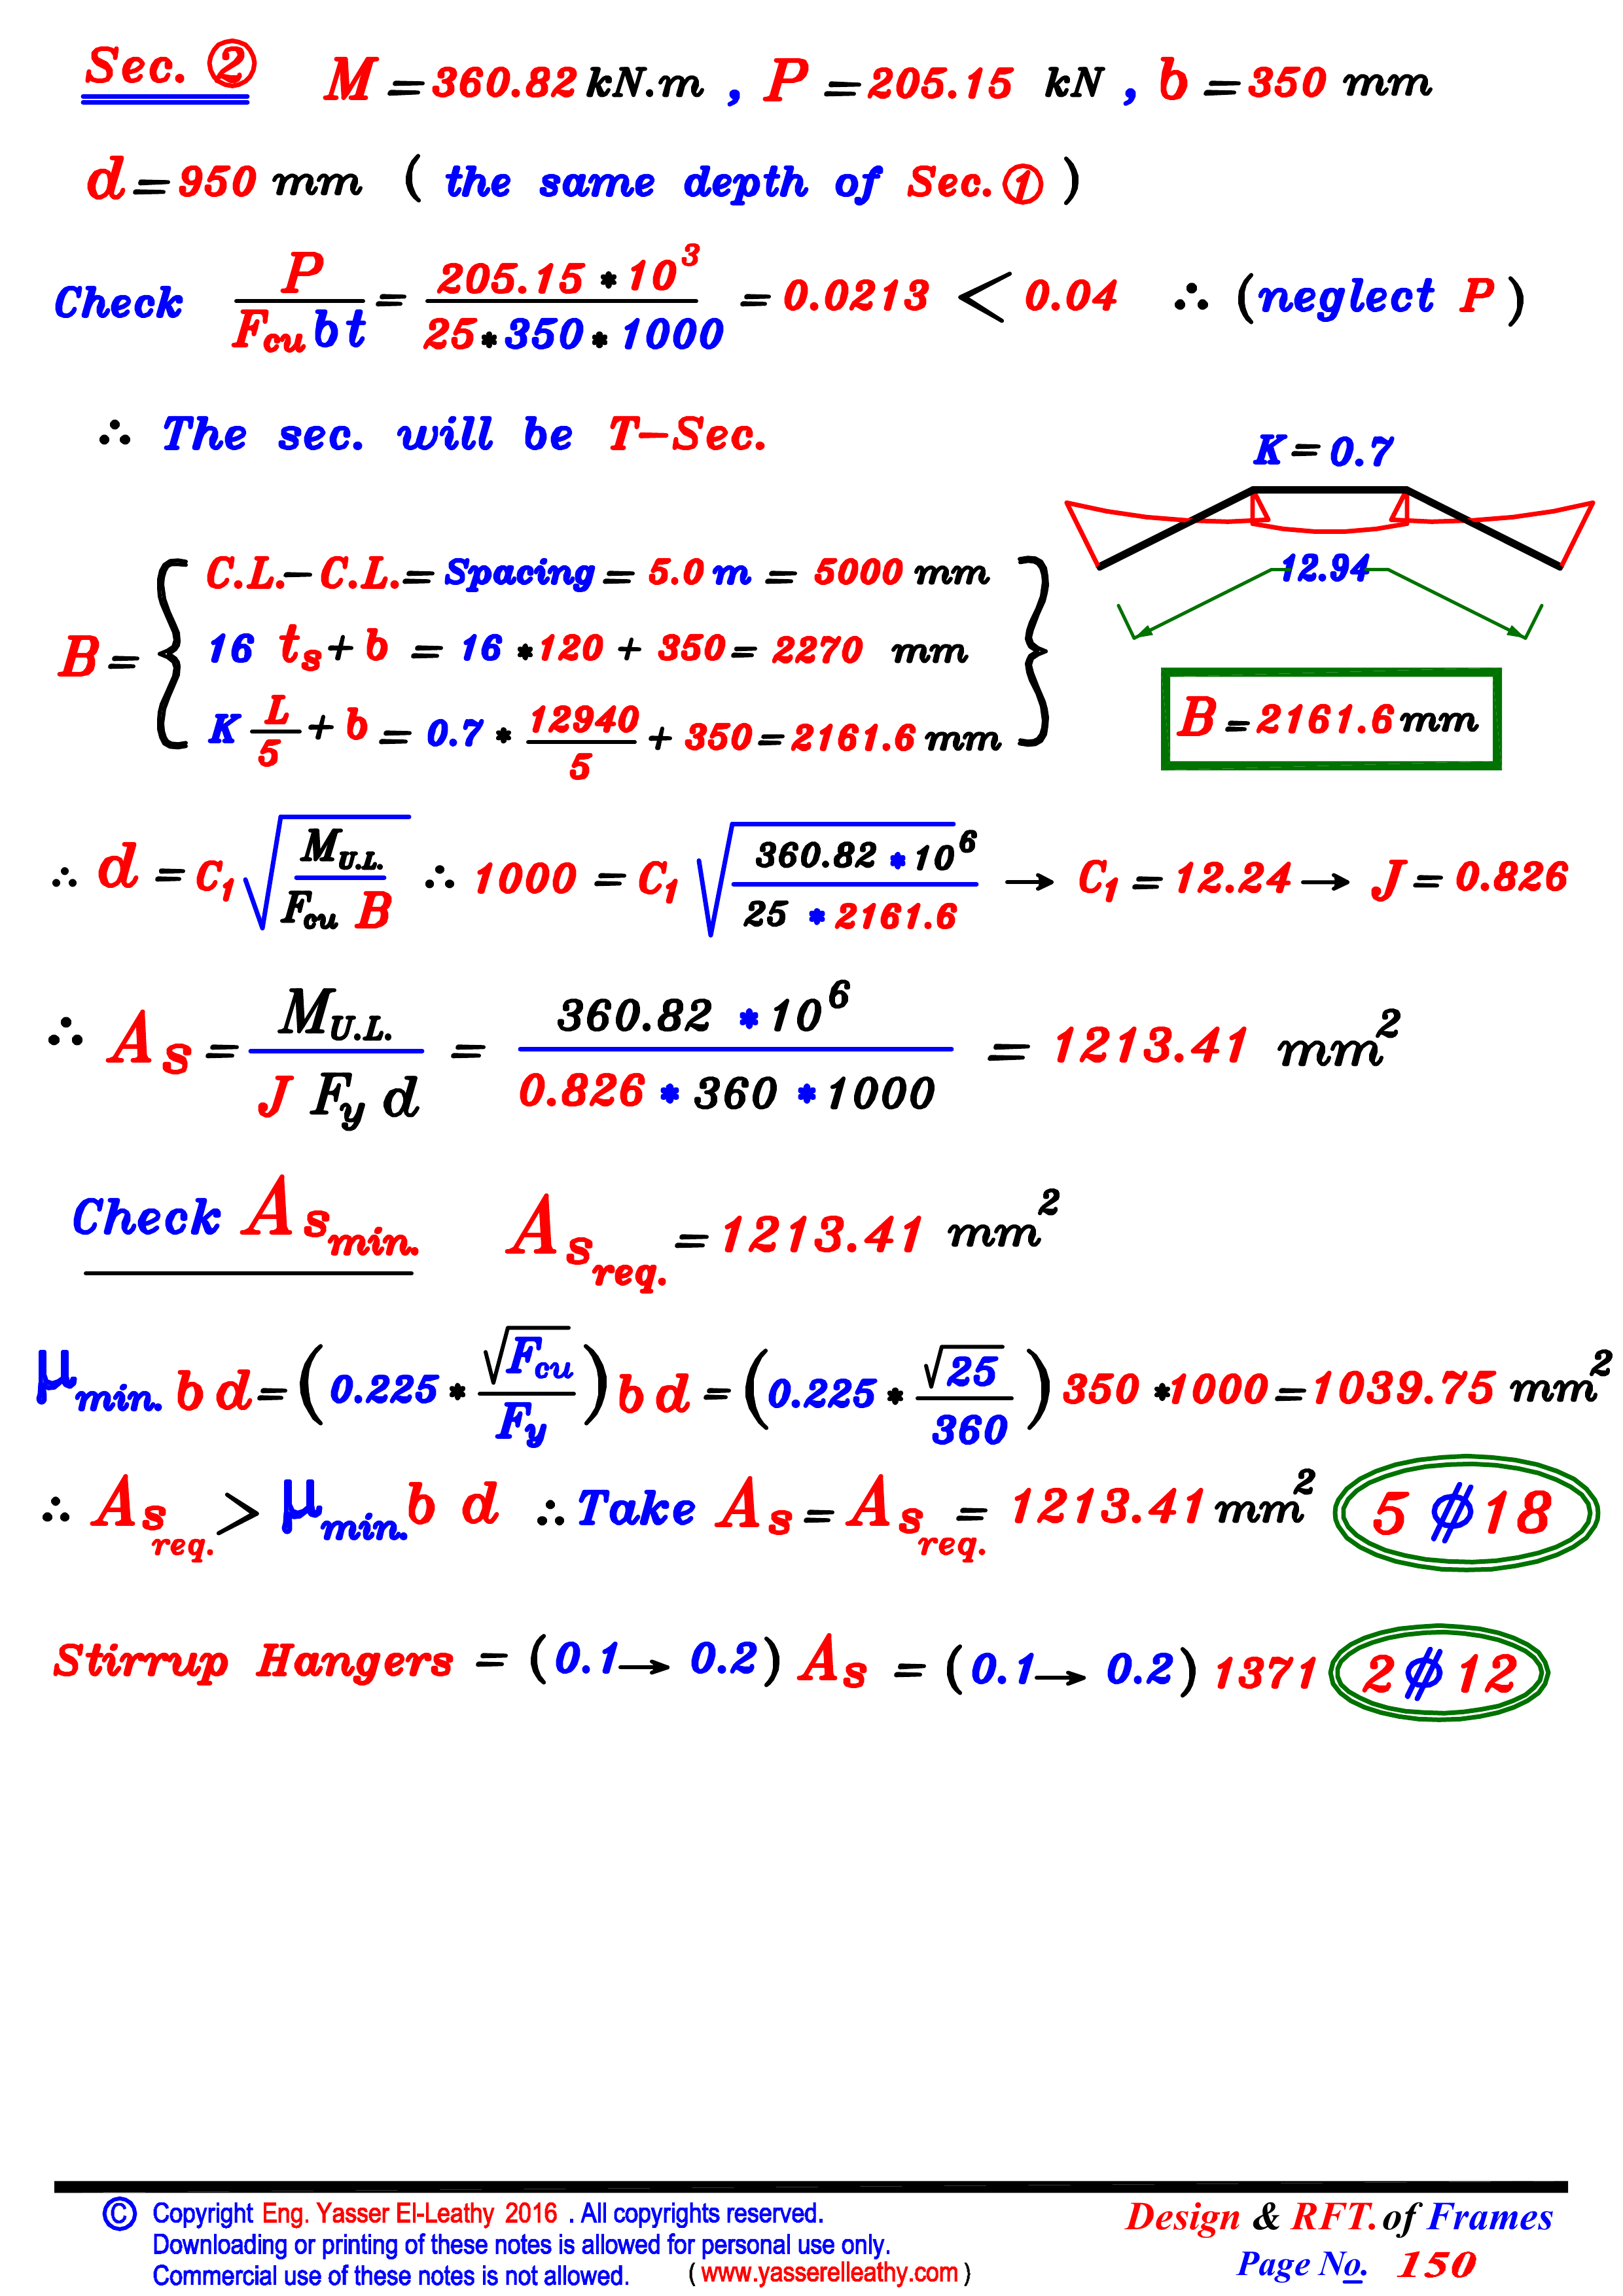 Sec. ② M = 360.82 kN.m , P = 205.15 kN , b = 350 mm
d = 950 mm ( the same depth of Sec. ① )
Check P / F_cu b t = 205.15 * 10^3 / 25 * 350 * 1000 = 0.0213 < 0.04 ∴ (neglect P )
∴ The sec. will be T-Sec.
K = 0.7
12.94
B = { C.L. - C.L. = Spacing = 5.0 m = 5000 mm
16 t_s + b = 16 * 120 + 350 = 2270 mm
K L/5 + b = 0.7 * 12940/5 + 350 = 2161.6 mm }
B = 2161.6 mm
∴ d = C_1 √(M_U.L. / F_cu B) ∴ 1000 = C_1 √(360.82 * 10^6 / 25 * 2161.6) → C_1 = 12.24 → J = 0.826
∴ A_s = M_U.L. / J F_y d = 360.82 * 10^6 / 0.826 * 360 * 1000 = 1213.41 mm^2
Check A_s min. A_s req. = 1213.41 mm^2
μ_min. b d = (0.225 * √F_cu / F_y) b d = (0.225 * √25 / 360) 350 * 1000 = 1039.75 mm^2
∴ A_s req. > μ_min. b d ∴ Take A_s = A_s req. = 1213.41 mm^2 5 ⌀ 18
Stirrup Hangers = (0.1 → 0.2) A_s = (0.1 → 0.2) 1371 2 ⌀ 12
© Copyright Eng. Yasser El-Leathy 2016 . All copyrights reserved.
Downloading or printing of these notes is allowed for personal use only.
Commercial use of these notes is not allowed. ( www.yasserelleathy.com )
Design & RFT. of Frames
Page No. 150